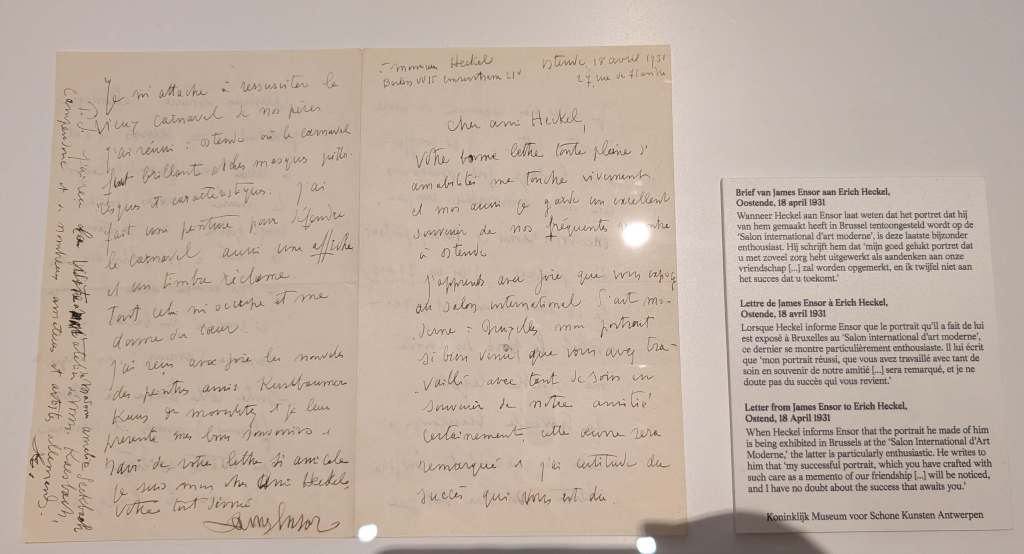 Monsieur Heckel
Ostende 18 avril 1931
Berlin W15
27, rue de
Cher ami Heckel,
Votre bonne lettre toute pleine d'
amabilités me touche vivement
et moi aussi je garde un excellent
souvenir de nos fréquentes
à Ostende
J'apprends avec joie que vous exposez
au Salon international d'art mo-
derne à Bruxelles, mon portrait
si bien venu que vous avez tra-
vaillé avec tant de soin en
souvenir de notre amitié
Certainement, cette œuvre sera
remarquée & j'ai certitude du
succès qui vous est du.
Je m'attache à ressusciter le
vieux carnaval de nos pères
J'ai réuni à Ostende où le carnaval
fut brillant et des masques pitto-
resques et caractéristiques. J'ai
fait une peinture pour défendre
le carnaval aussi une affiche
et un timbre réclame.
Tout cela m'occupe et me
donne du cœur
J'ai reçu avec joie les nouvelles
des peintres amis
& je leur
présente mes bons souvenirs.
Ravi de votre lettre si amicale
Je suis mon cher ami Heckel,
Votre tout dévoué
James Ensor
P.S. J'ai reçu
et de nombreux amateurs et artistes allemands.
Brief van James Ensor aan Erich Heckel,
Oostende, 18 april 1931
Wanneer Heckel aan Ensor laat weten dat het portret dat hij
van hem gemaakt heeft in Brussel tentoongesteld wordt op de
'Salon international d'art moderne', is deze laatste bijzonder
enthousiast. Hij schrijft hem dat 'mijn goed gelukt portret dat
u met zoveel zorg hebt uitgewerkt als aandenken aan onze
vriendschap [...] zal worden opgemerkt, en ik twijfel niet aan
het succes dat u toekomt.'
Lettre de James Ensor à Erich Heckel,
Ostende, 18 avril 1931
Lorsque Heckel informe Ensor que le portrait qu'il a fait de lui
est exposé à Bruxelles au 'Salon international d'art moderne',
ce dernier se montre particulièrement enthousiaste. Il lui écrit
que 'mon portrait réussi, que vous avez travaillé avec tant de
soin en souvenir de notre amitié [...] sera remarqué, et je ne
doute pas du succès qui vous revient.'
Letter from James Ensor to Erich Heckel,
Ostend, 18 April 1931
When Heckel informs Ensor that the portrait he made of him
is being exhibited in Brussels at the 'Salon International d'Art
Moderne,' the latter is particularly enthusiastic. He writes to
him that 'my successful portrait, which you have crafted with
such care as a memento of our friendship [...] will be noticed,
and I have no doubt about the success that awaits you.'
Koninklijk Museum voor Schone Kunsten Antwerpen